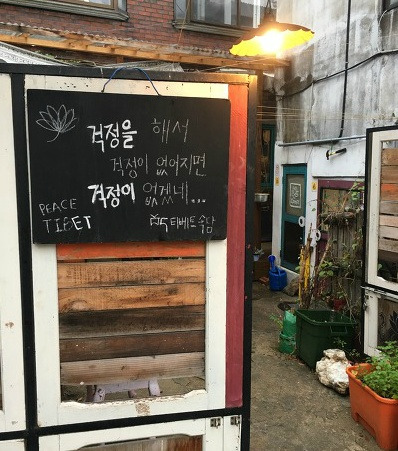 걱정을 해서
걱정이 없어지면
걱정이 없겠네...
PEACE
TIBET
티베트 속담